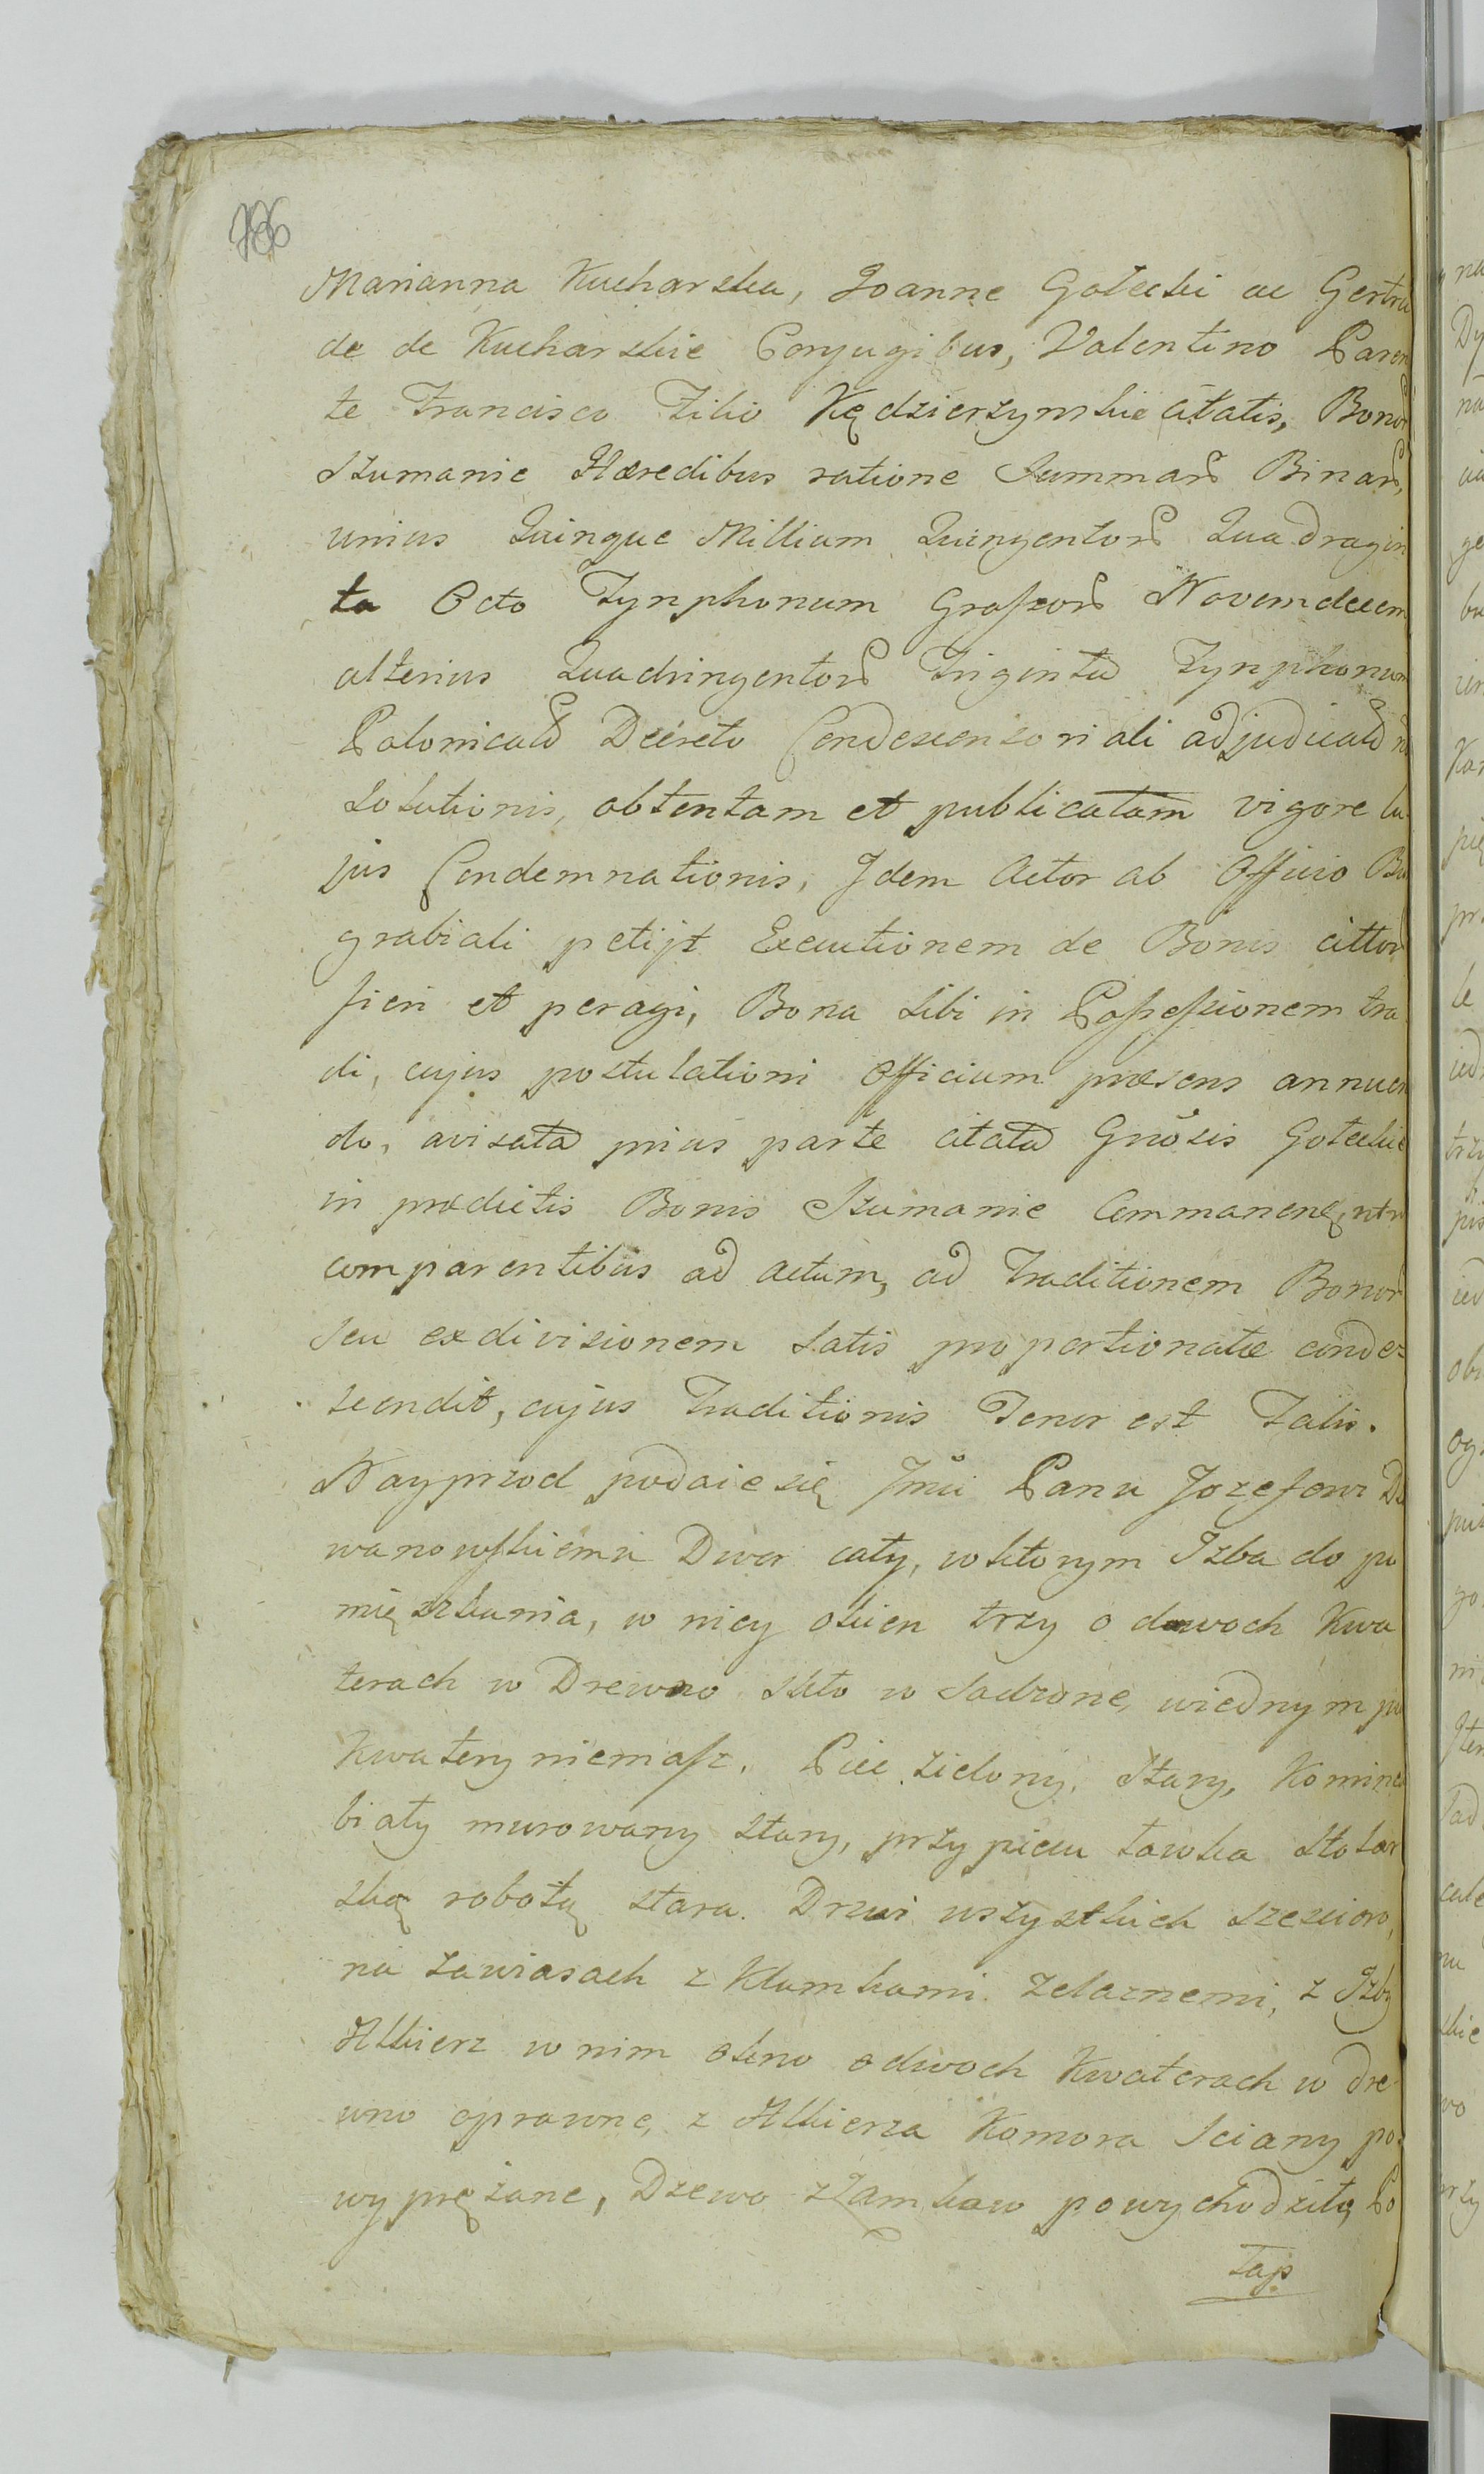 786
Marianna Kucharska, Joanne Gołecki ac Gertru
de de Kucharskie Conjugibus, Valentino Paren
te Francisco Filio Kędzierzynskie citatis, Bonor
Szumanie Hæredibus ratione Summar Binar,
unius Quinque Millium Quingentor Quadragin
ta Octo Tynphonum Groszor Novemdecem
alterius Quadringentor Triginta Tynphonum
Polonicald Decreto Condescensoriali adjudicald
Solutionis, obtentam et publicatam vigore hu
jus Condemnationis, Idem Actor ab Officio Bu
grabiali petijt Executionem de Bonis cittor
fieri et peragi, Bona sibi in Possessionem tra
di, cujus postulationi Officium præsens annuen
do, avisata prius parte citata Gnosis Gołeckie
in prædictis Bonis Szumanie Commanen
comparentibus ad actum, ad Traditionem Bonor
seu exdivisionem satis proportionatæ condes
cendit, cujus Traditionis Tenor est Talis.
Nayprzod podaie się Jmci Panu Jozefowi Du
wanowskiemu Dwor cały, wktorym Izba do po
mięszkania, w niey okien trzy o dwoch Kwa
terach w Drewno szkło w sadzone, wiednym pu
Kwatery niemasz. Piec zielony, stary, Kominek
biały murowany stary, przy piecu ławka stolar
ską robotą stara. Drzwi wszystkich sześcioro,
na zawiasach z Klamkami zelaznemi, z Izby
Alkierz wnim okno odwoch Kwaterach w dre
wno oprawne, z Alkierza Komora sciany po
wyprężane, Drzewo zzamkow powychodziło, Po
łap